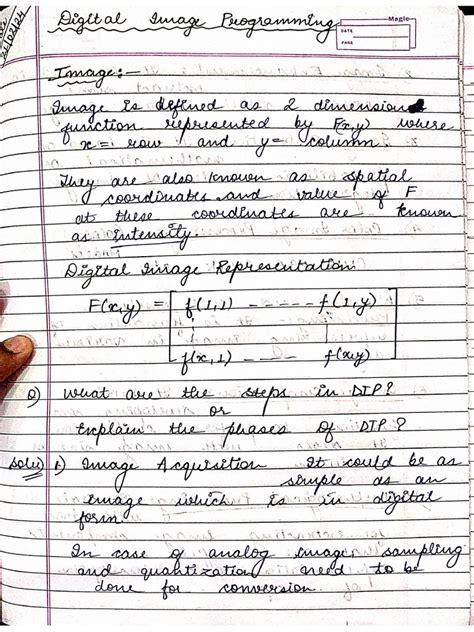 21/02/24
Digital Image Programming
Magic
DATE
PAGE
Image:-
Image is defined as 2 dimension
function represented by F(x,y) where
x = row and y = column.
They are also known as spatial
coordinates and value of F
at these coordinates are known
as intensity.
Digital Image Representation
F(x,y) = [ f(1,1) ----- f(1,y)
f(x,1) ---- f(x,y) ]
Q) What are the steps in DIP?
or
Explain the phases of DIP?
Soln) 1) Image Acquisition It could be as
simple as an
image which is in digital
form.
In case of analog image, sampling
and quantization need to be
done for conversion.